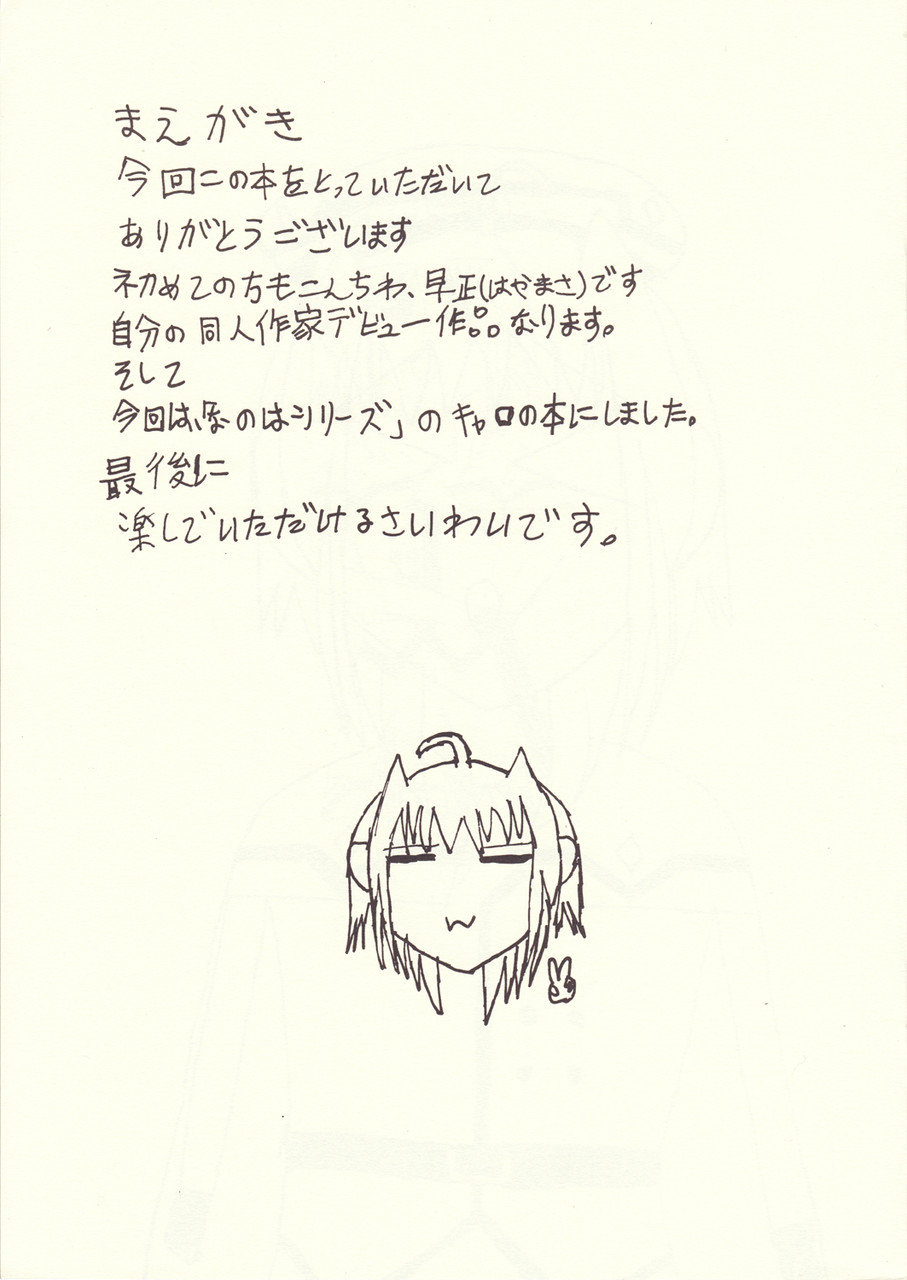 まえがき
今回この本をとっていただいて
ありがとうございます
初めての方もこんちわ、早正(はやまさ)です
自分の同人作家デビュー作品なります。
そして
今回は、「なのはシリーズ」のキャロの本にしました。
最後に
楽しでいただけるさいわいです。